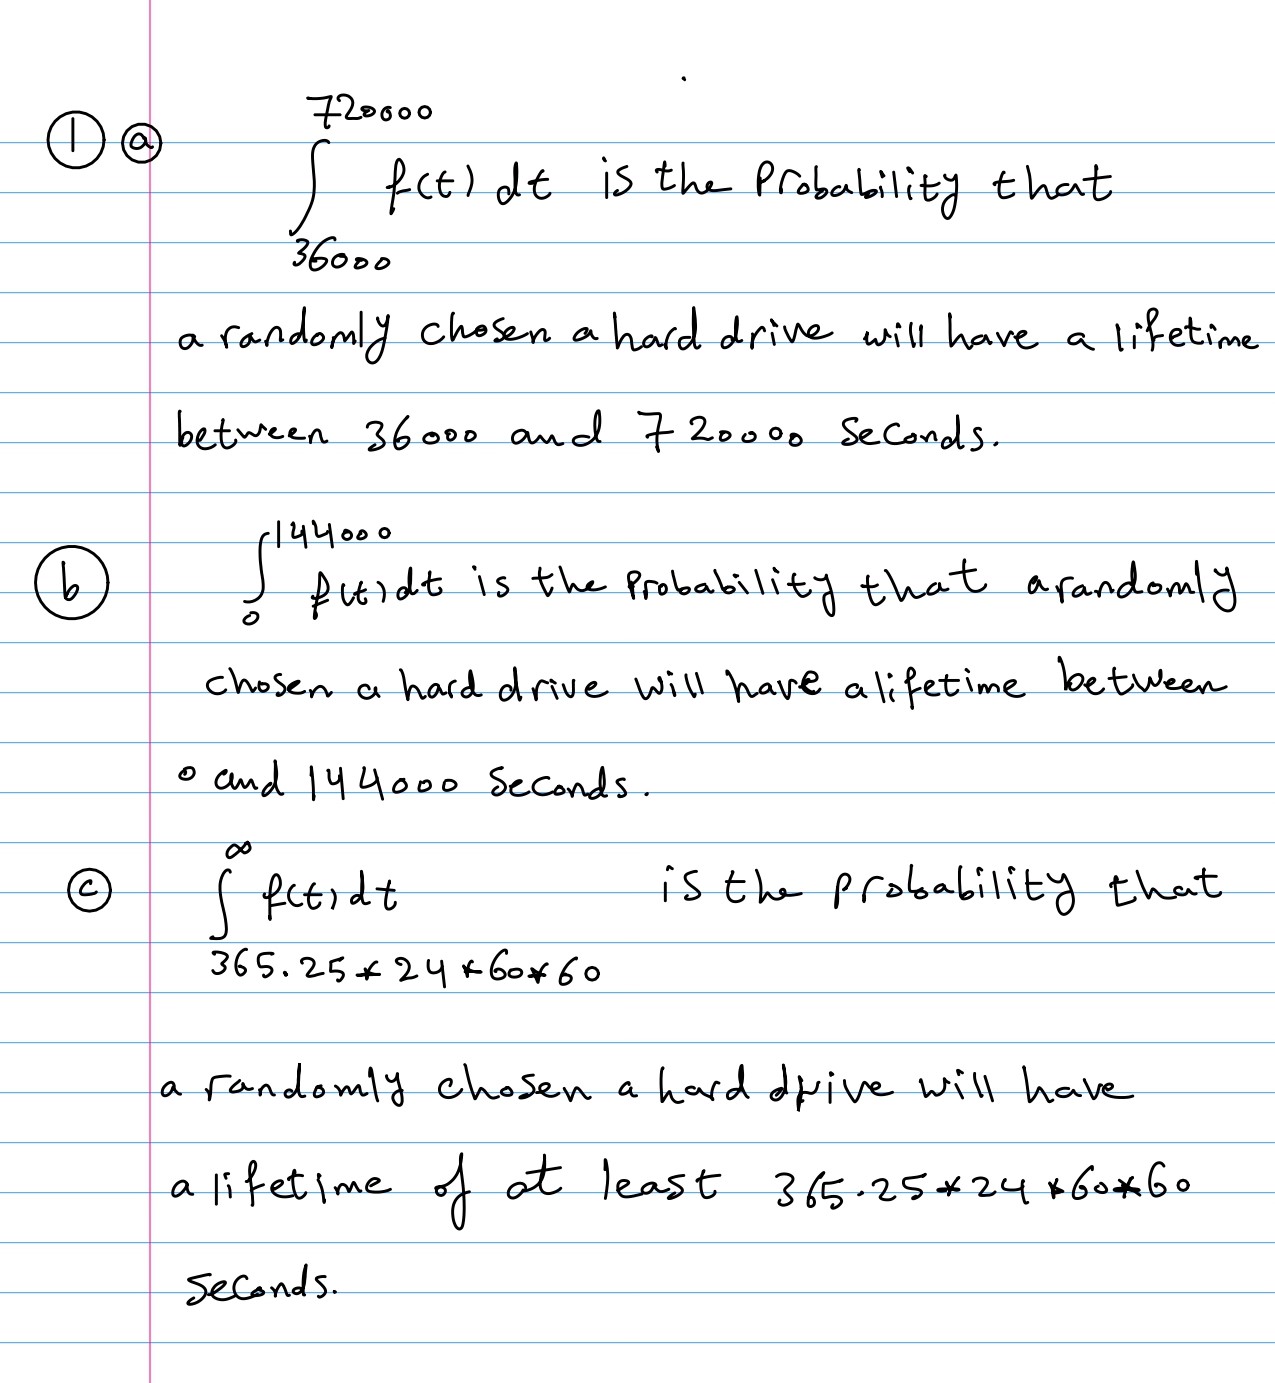 ① ⓐ ∫_{36000}^{720000} f(t) dt is the Probability that
a randomly chosen a hard drive will have a lifetime
between 36000 and 720000 Seconds.
ⓑ ∫_{0}^{144000} f(t) dt is the Probability that a randomly
chosen a hard drive will have a lifetime between
0 and 144000 Seconds.
ⓒ ∫_{365.25*24*60*60}^{∞} f(t) dt is the probability that
a randomly chosen a hard drive will have
a lifetime of at least 365.25*24*60*60
Seconds.